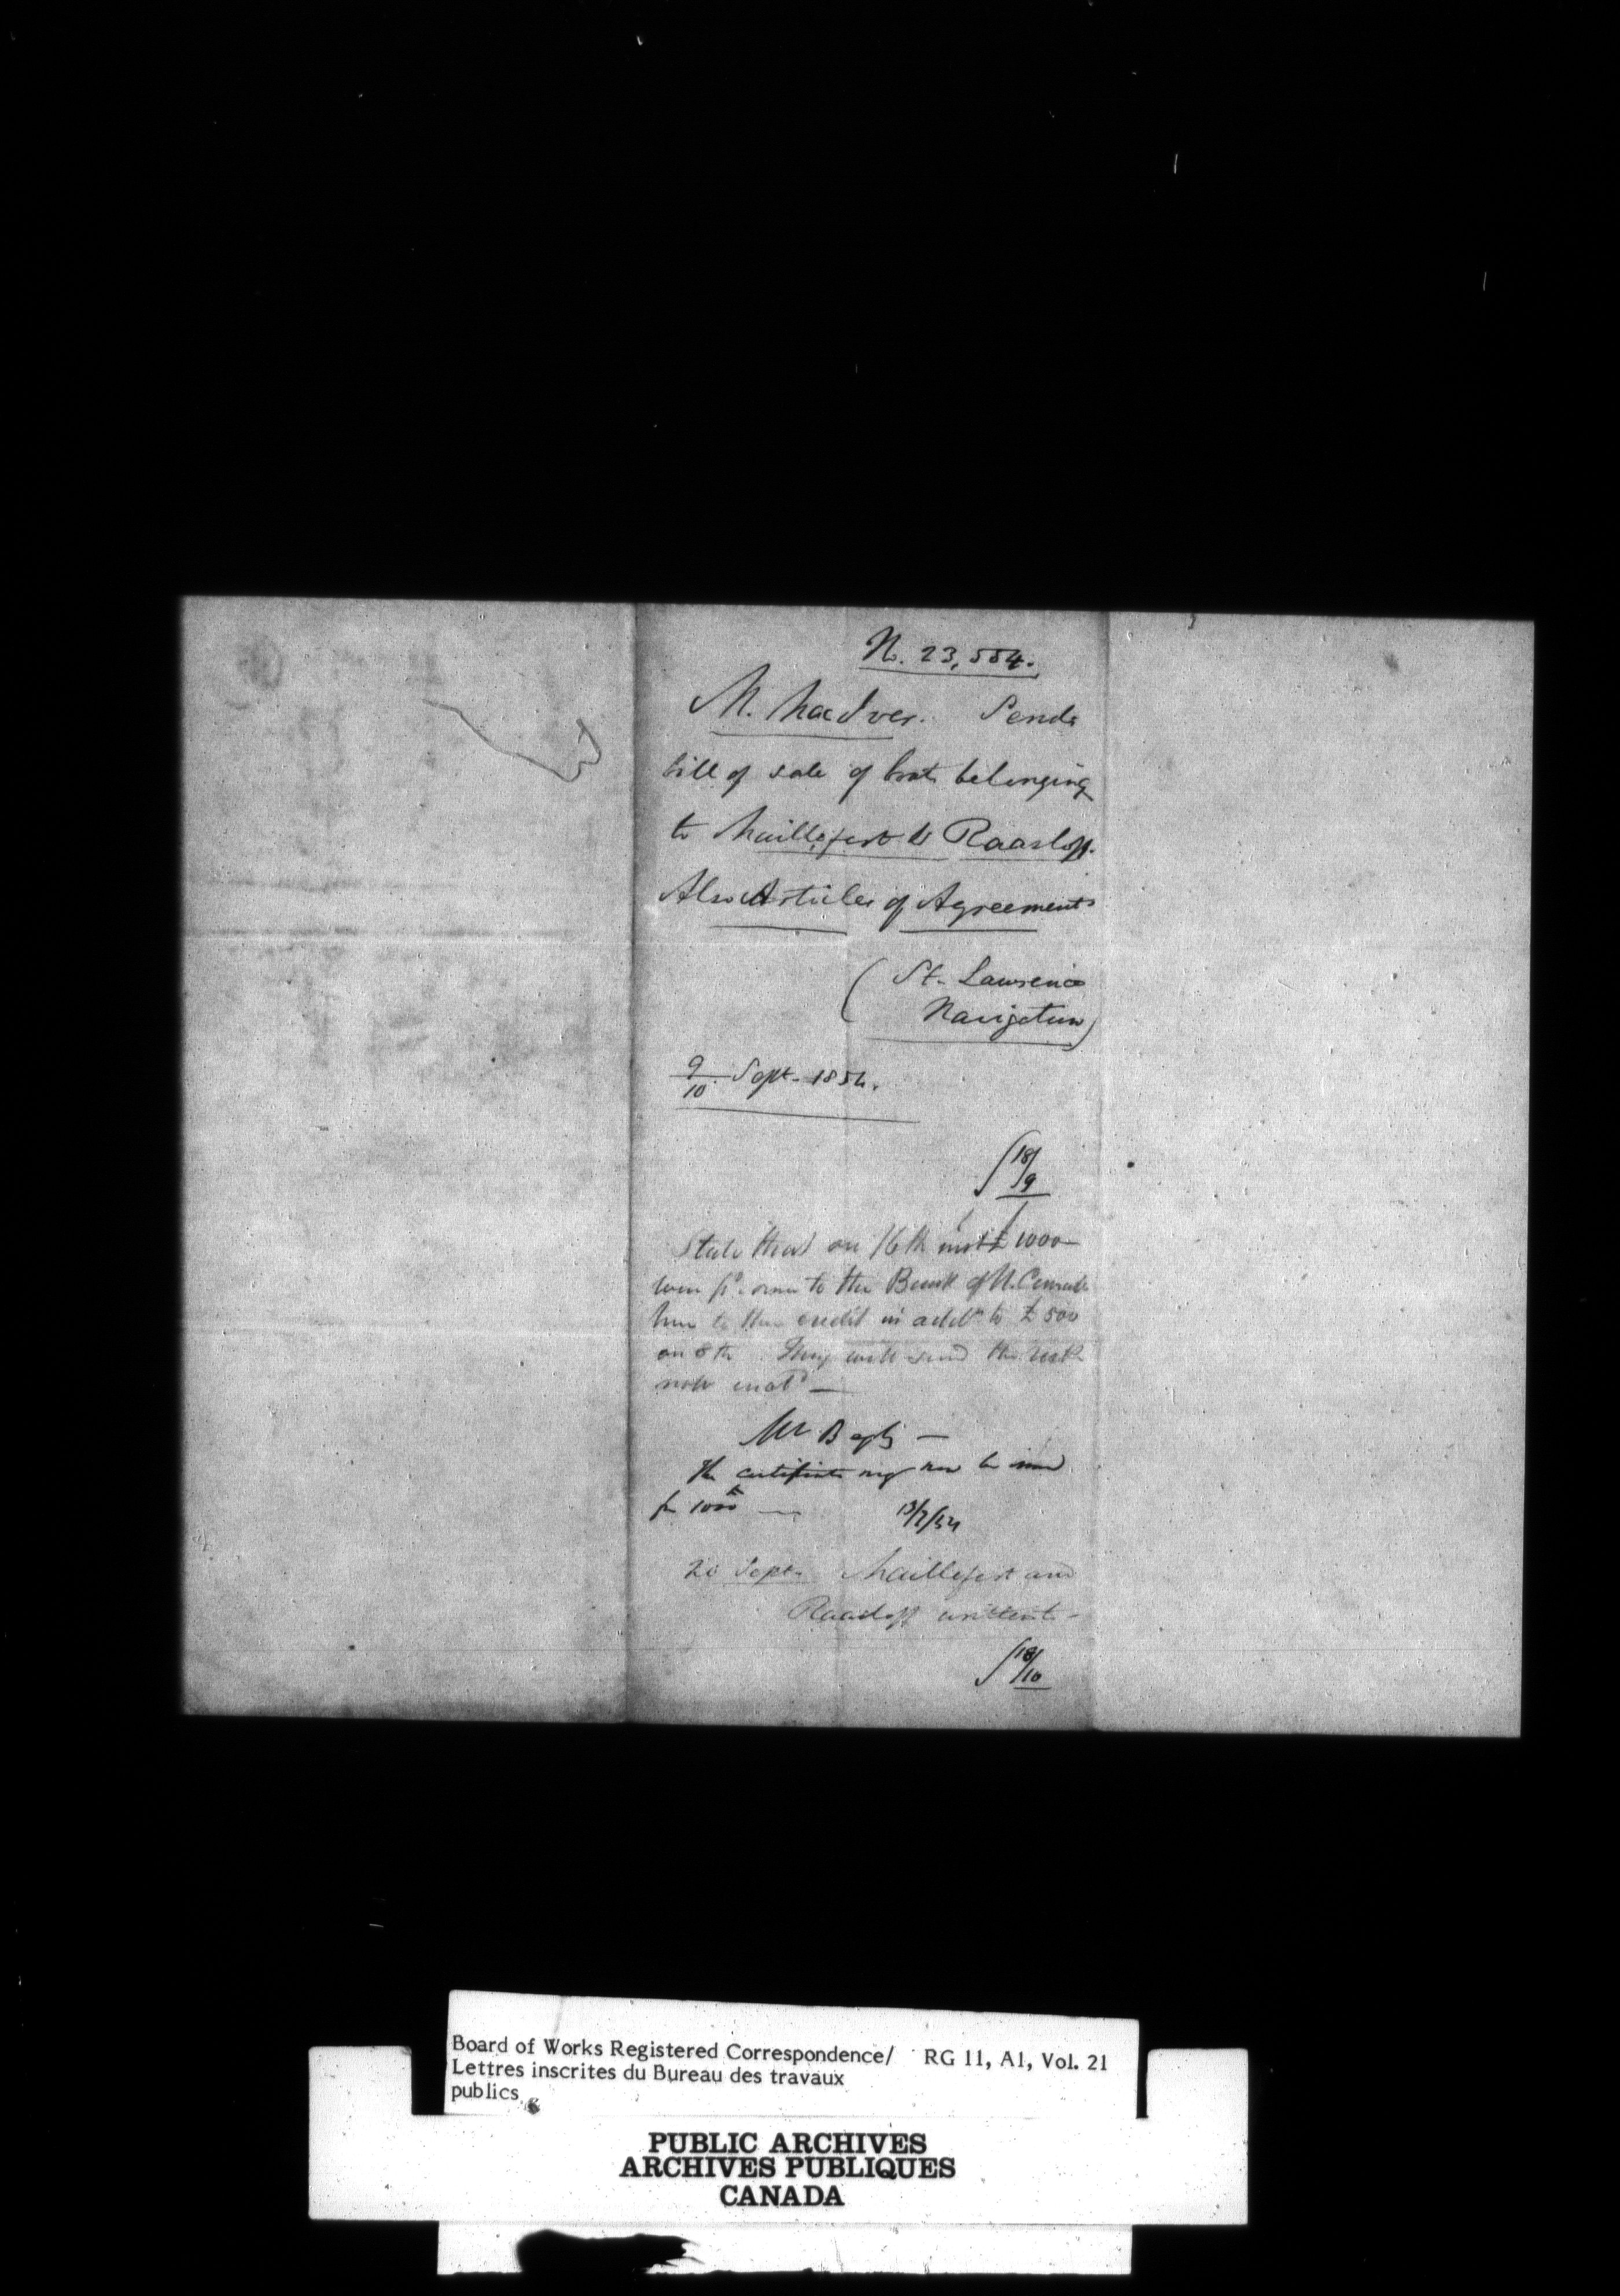 No. 23,554.
M. MacIver. Sends
bill of sale of boat belonging
to Maillefert & Raasloff.
Also Articles of Agreement
(St. Lawrence
Navigation)
9/10 Sept. 1854.
18/9
State that on 16th inst £1000
were to the Bank of U. Canada
here to the credit in addn to £500
on 8th. They will send the
Mr Begly —
The certificate may now be
for 1000£ —
20 Sept. Maillefert and
Raasloff
18/10
Board of Works Registered Correspondence/ RG 11, A1, Vol. 21
Lettres inscrites du Bureau des travaux
publics
PUBLIC ARCHIVES
ARCHIVES PUBLIQUES
CANADA